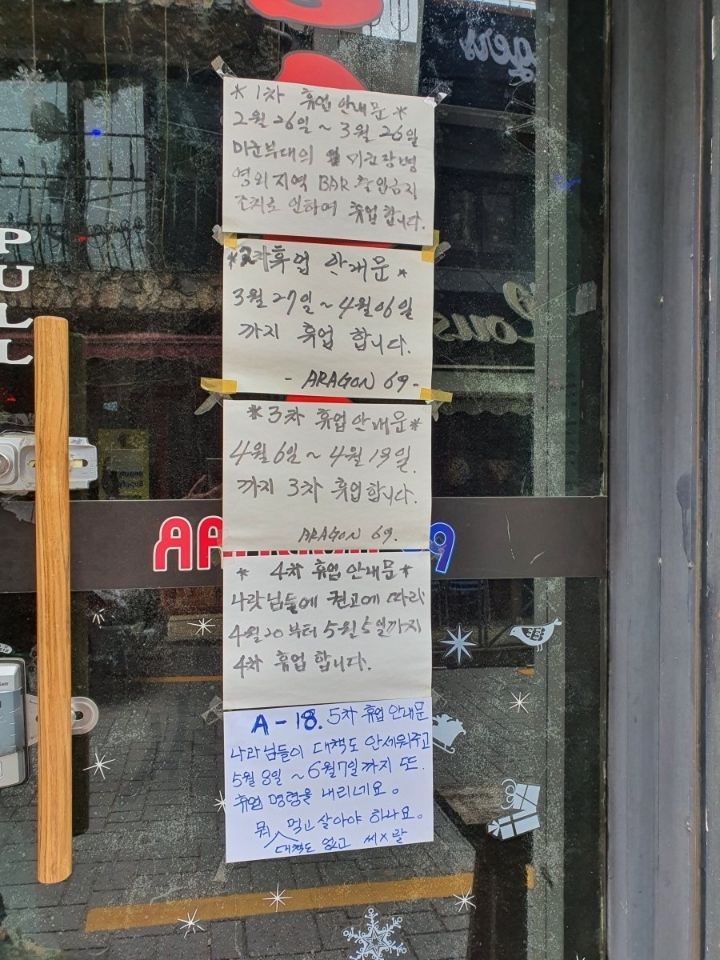 PULL
* 1차 휴업 안내문 *
2월 26일 ~ 3월 26일
미군부대의 미군장병
영외지역 BAR 출입금지
조치로 인하여 휴업 합니다.
*2차휴업 안내문 *
3월 27일 ~ 4월 06일
까지 휴업 합니다.
- ARAGON 69 -
* 3차 휴업 안내문 *
4월 6일 ~ 4월 19일.
까지 3차 휴업합니다.
ARAGON 69.
* 4차 휴업 안내문 *
나랏님들에 권고에 따라
4월20부터 5월5일까지
4차 휴업 합니다.
A - 18. 5차 휴업 안내문
나라님들이 대책도 안세워주고
5월 8일 ~ 6월7일까지 또.
휴업 명령을 내리네요.
뭐 먹고 살아야 하나요.
대책도 없고 씨X랄